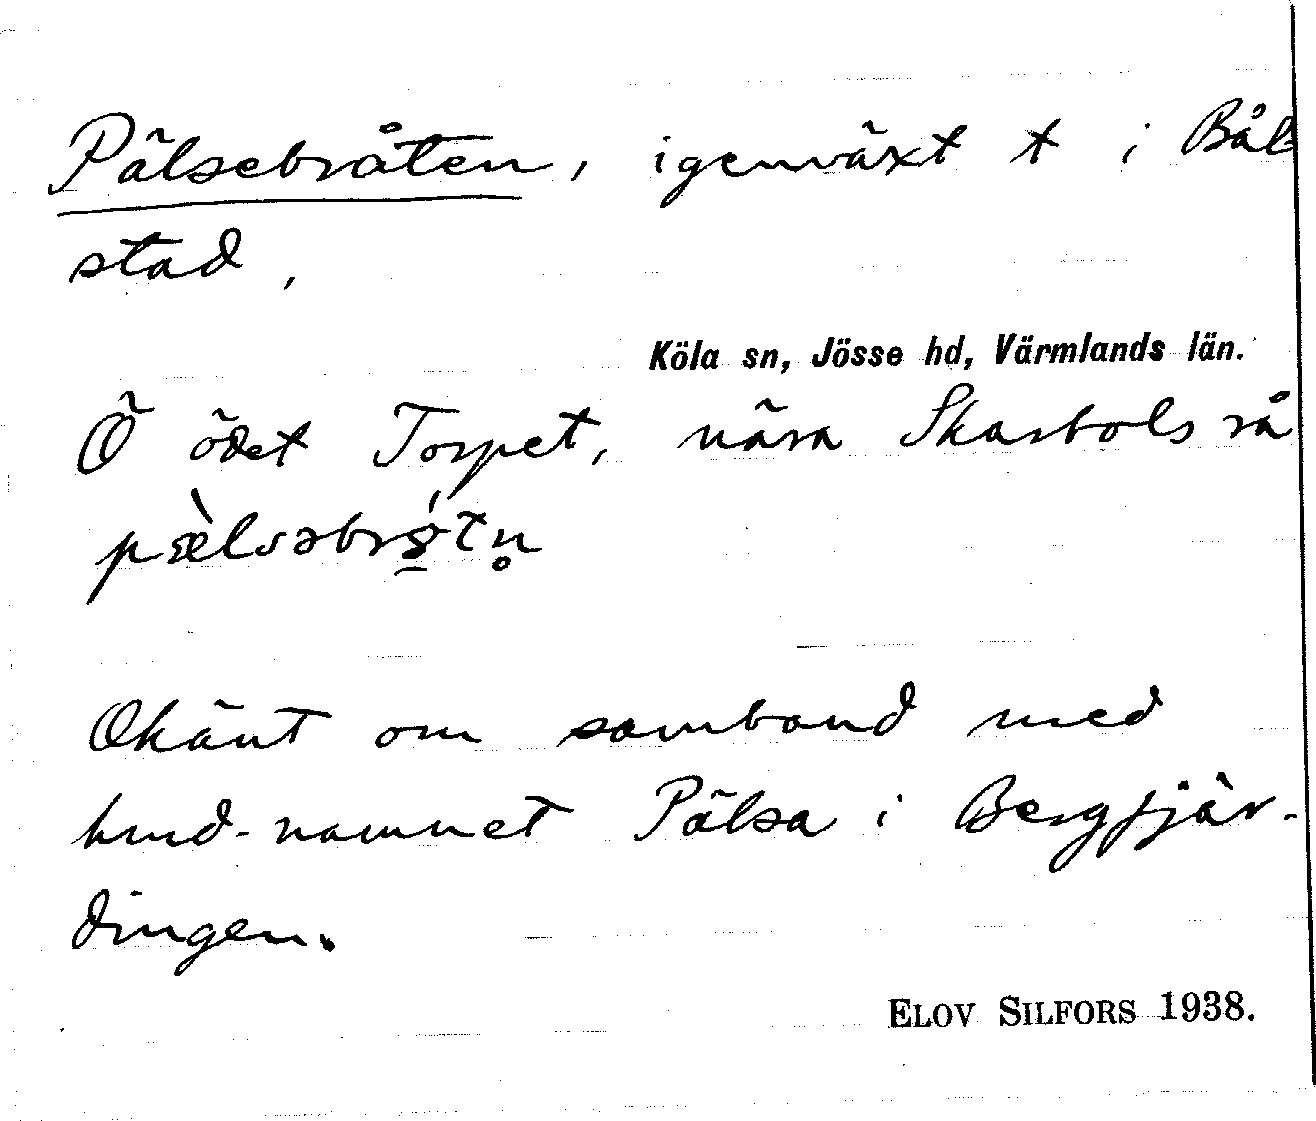 Pälsebråten, igenväxt t i Bål
stad,
Köla sn, Jösse hd, Värmlands län.
Ö ödet Torpet, nära Skarbols rå
pæ̀lsəbrǿtn̥
Okänt om samband med
hund-namnet Pälsa i Bergfjär-
dingen.
ELOV SILFORS 1938.